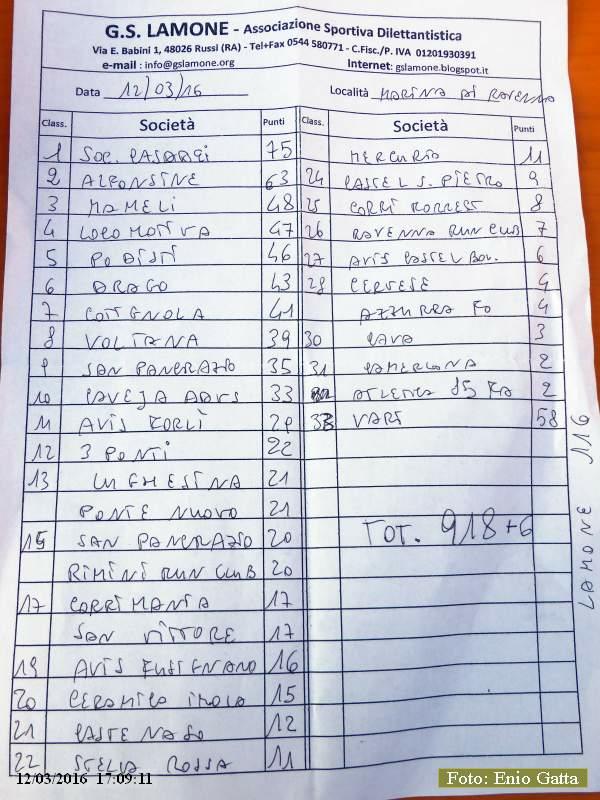 G.S. LAMONE - Associazione Sportiva Dilettantistica
Via E. Babini 1, 48026 Russi (RA) - Tel+Fax 0544 580771 - C.Fisc./P. IVA 01201930391
e-mail : info@gslamone.org Internet: gslamone.blogspot.it
Data 12/03/16 Località MARINA DI RAVENNA
Class. Società Punti Class. Società Punti
1 SOC. CASARGI 75
2 ALFONSINE 63
3 MAMELI 48
4 LOCOMOTIVA 47
5 PODISTI 46
6 DRAGO 43
7 COTIGNOLA 41
8 VOLTANA 39
9 SAN PANCRAZIO 35
10 CAVEJA 33
11 AVIS FORLÌ 29
12 3 PONTI 22
13 LUGHESINA 21
PONTE NUOVO 21
15 SAN PANCRAZIO 20
RIMINI RUN CLUB 20
17 CORRIMANIA 17
SAN VITTORE 17
19 AVIS FUSIGNANO 16
20 CERAMICA IMOLA 15
21 CASTENASO 12
22 STELLA ROSSA 11
MERCURIO 11
24 CASTEL S. PIETRO 9
25 CORRI FORREST 8
26 RAVENNA RUN CLUB 7
27 AVIS CASTEL BOL. 6
28 CERVESE 4
AZZURRA FO 4
30 CAVA 3
31 CAMERLONA 2
ATLETICA 85 FA 2
33 VARI 58
TOT. 918+6
LAMONE 116
12/03/2016 17:09:11
Foto: Enio Gatta